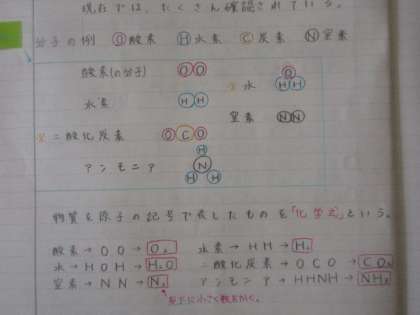 現在では、たくさん確認されている。
分子の例 O酸素 H水素 C炭素 N窒素
酸素(の分子) OO
※水 O HH
水素 HH
窒素 NN
※二酸化炭素 OCO
アンモニア H N H H
物質を原子の記号で表したものを「化学式」という。
酸素→OO→O₂ 水素→HH→H₂
水→HOH→H₂O 二酸化炭素→OCO→CO₂
窒素→NN→N₂ アンモニア→HHNH→NH₃
右下に小さく数をかく。